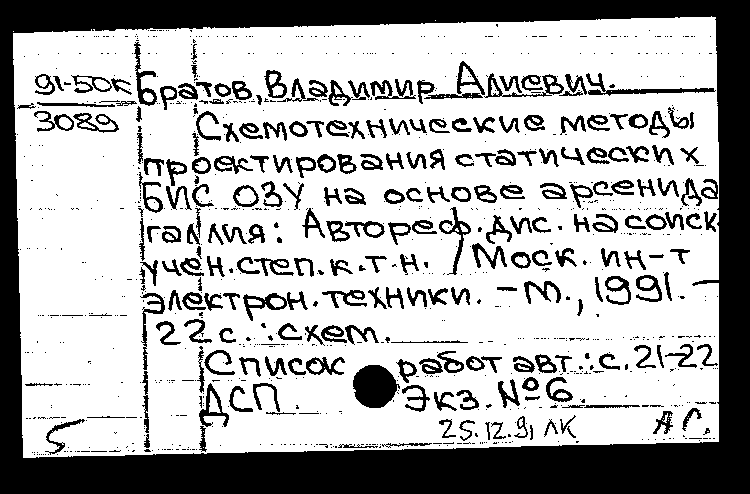 91-50К Братов, Владимир Алиевич.
3089 Схемотехнические методы
проектирования статических
БИС ОЗУ на основе арсенида
галлия: Автореф. дис. на соиск.
учен. степ. к.т.н. / Моск. ин-т
электрон. техники. – М., 1991. –
22 с.: схем.
Список работ авт.: с. 21-22
ДСП. Экз. №6.
5 25.12.91 ЛК А С.